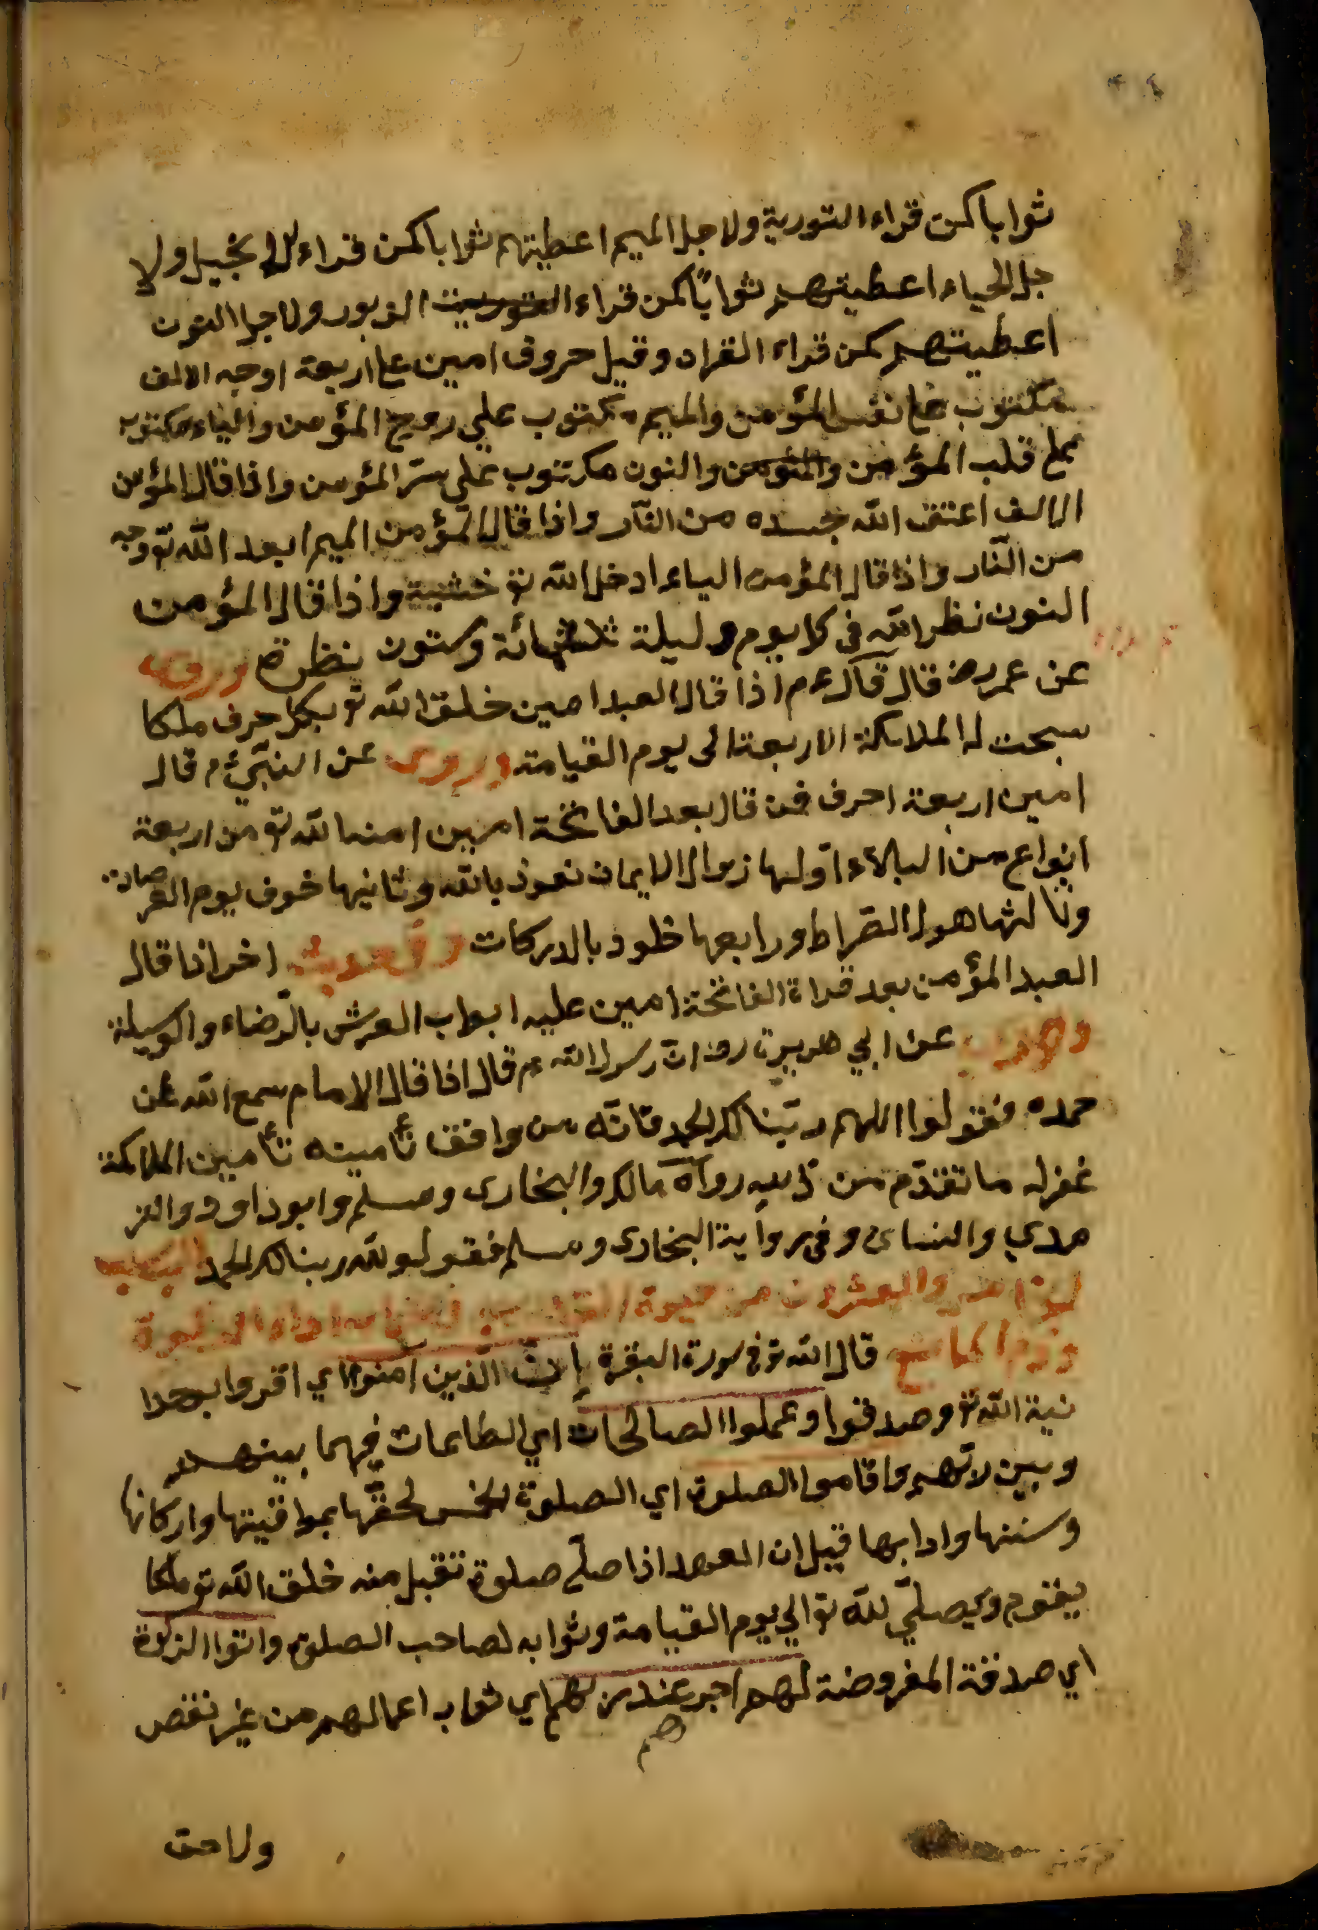 ثوابا كمن قراء التورية ولاجل الميم اعطيتهم ثوابا كمن قراء الانجيل ولا
جل الياء اعطيتهم ثوابًا كمن قراء الزبور ولاجل النون
اعطيتهم كمن قراء القران وقيل حروف امين على اربعة اوجه الالف
مكتوب على نفس المؤمن والميم مكتوب على روح المؤمن والياء مكتوب
على قلب المؤمن والمؤمن والنون مكتوب على سرّ المؤمن واذا قال المؤمن
الالف اعتق الله جسده من النّار واذا قال المؤمن الميم ابعد الله تع وجه
من النّار واذا قال المؤمن الياء ادخل الله تع خشية واذا قال المؤمن
النون نظر الله فى كل يوم وليلة ثلثمائة وستون نظرة وروى
عن عمر رض قال قال عم اذا قال العبد امين خلق الله تع بكل حرف ملكا
سبحت له الملائكة الاربعة الى يوم القيامة وروى عن النبيّ عم قال
امين اربعة احرف فمن قال بعد الفاتحة امين امنه الله تع من اربعة
انواع من البلاء اوّلها زوال الايمان نعوذ بالله وثانيها خوف يوم العرصات
وثالثها هول الصّراط ورابعها خلود بالدركات وفى حديث اخر اذا قال
العبد المؤمن بعد قراة الفاتحة امين عليه ابواب العرش بالرّضاء والوسيلة
وروى عن ابي هريرة رض انّ رسول الله عم قال اذا قال الامام سمع الله لمن
حمده فقولوا اللهم ربّنا لك الحمد فانّه من وافق تأمينه تأمين الملائكة
غفر له ما تقدّم من ذنبه رواه مالك والبخارى ومسلم وابو داود والتر
مدي والنسائ وفى رواية البخارى ومسلم فقولو لله ربنا لك الحمد الباب
والعشرون من حيوة القلوب فى اداء الزكوة
وذم المانع قال الله تع فى سورة البقرة إنّ الّذين آمنوا اي اقروا بوحدا
نية الله تع وصدقوا وعملوا الصالحات اي الطاعات فيهما بينهم
وبين ربّهم واقاموا الصلوة اي الصلوة الخمس لحقّها بمواقيتها واركانها
وسننها وادابها قيل ان العبد اذا صلّى صلوة تقبل منه خلق الله تع ملكا
يقوم ويصلّي لله تع الي يوم القيامة وثوابه لصاحب الصلوة واتوا الزكوة
اي صدقة المفروضة لهم اجر عند ربهم اي ثواب اعمالهم من غير نقص
هم
ولاحق